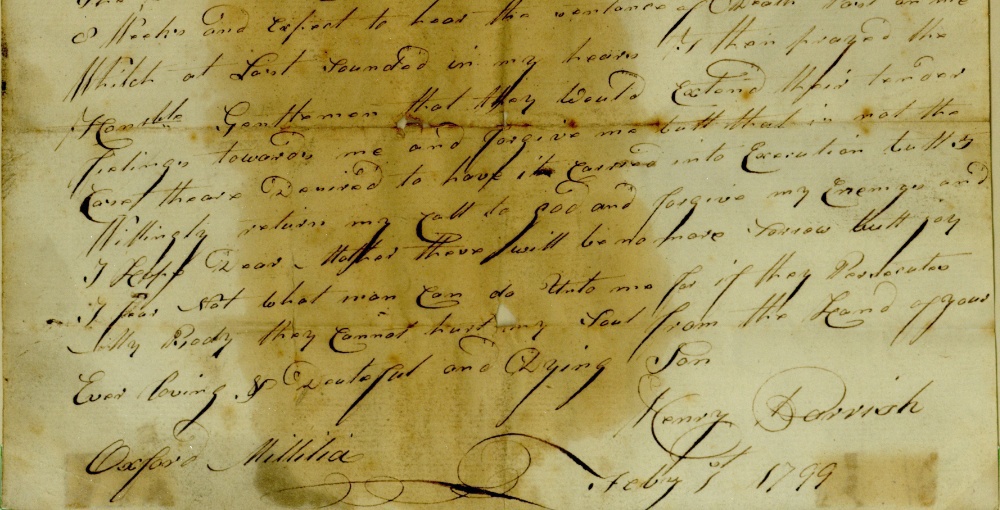 8 Weeks and Expect to hear the sentance of Death Past on me
Whitch at Last Sounded in my hears I then prayed the
Honrble Gentlemen that they Would Extend their tender
feelings towards me and forgive me butt that is not the
Case theare Desired to have it Carred into Execution butt I
Willingly return my Call to god and forgive my Enemys and
I Hope Dear Mother there will be no more Sorrow butt joy
I fear Not what man Can do Unto me for if they Persecutes
My Body they Cannot hurt my Soul from the Hand of your
Ever loving & Deuteful and Dying Son
Henry Parrish
Oxford Millitia Feby 1st 1799